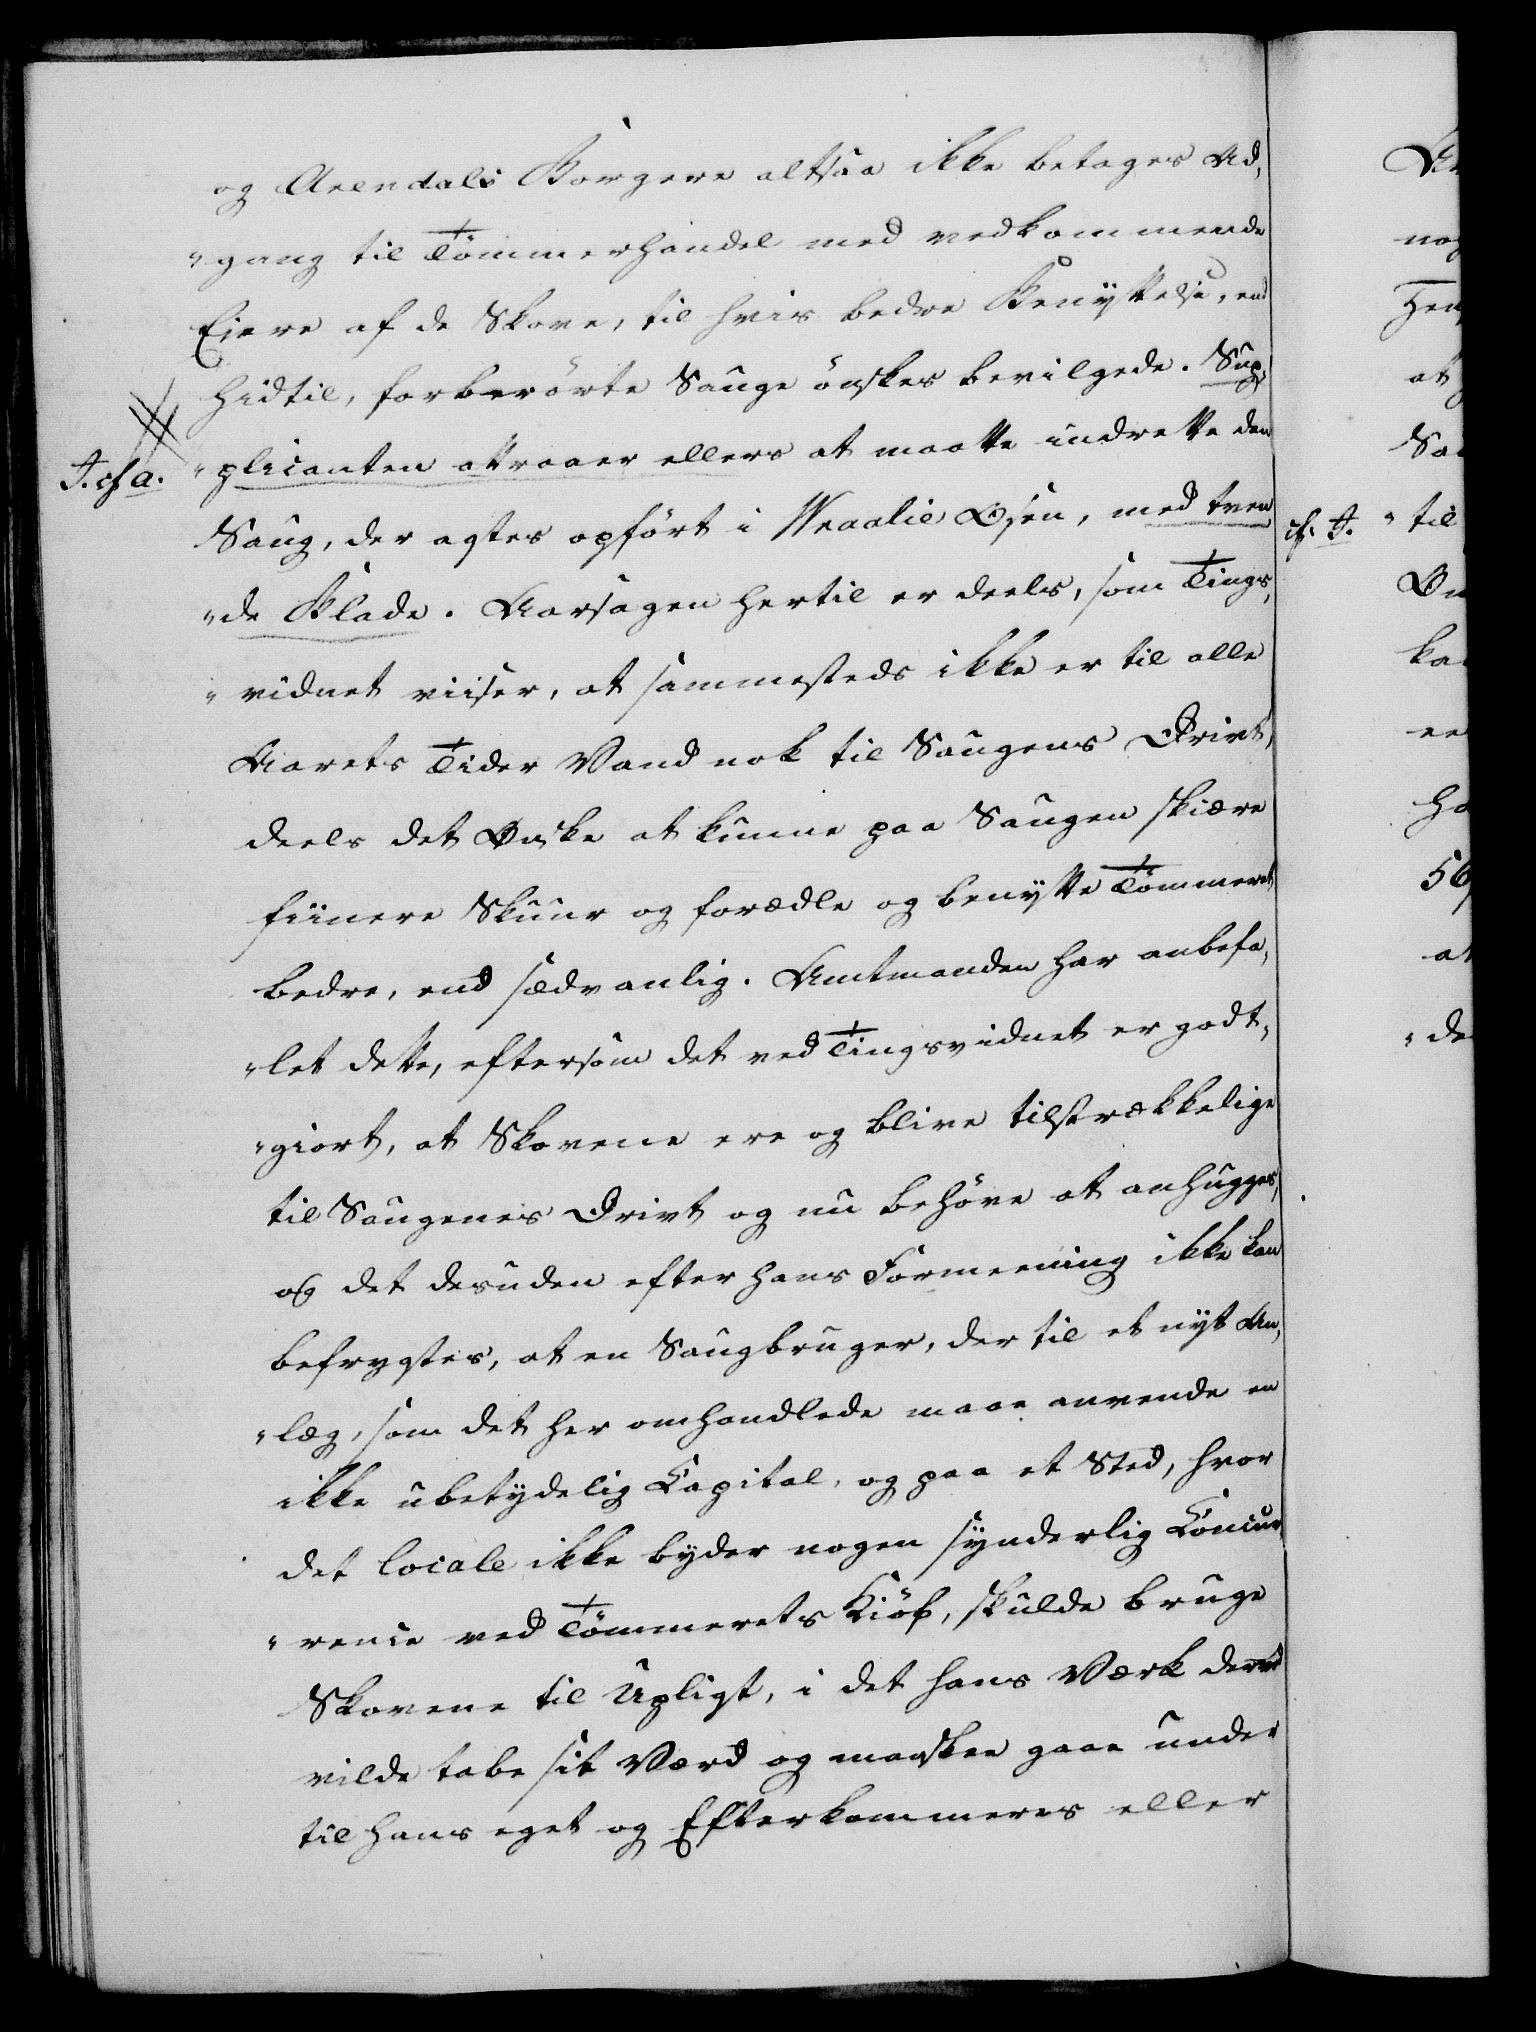 og Arendals Borgere altsaa ikke betages Ad,
"gang til Tömmerhandel med vedkommende
Eiere af de Skove, til hvis bedre Benyttelse, end
hidtil, forberörte Sauge önskes bevilgede. Sup,
"plicanten attraaer ellers at maatte indrette den
Saug, der agtes opfört i Wraalie Osen, med tven
"de Blade. Aarsagen hertil er deels, som Tings,
"vidnet viiser, at sammesteds ikke er til alle
Aarets Tider Vand nok til Saugens Drivt,
deels det Ønske at kunne paa Saugen skiære
fiinere Skuur og forædle og benytte Tömmeret
bedre, end sædvanlig. Amtmanden har anbefa,
"let dette, eftersom det ved Tingsvidnet er godt,
"giort, at Skovene ere og blive tilstrækkelige
til Saugenes Drivt og nu behöve at anhugges,
og det desuden efter hans Formeening ikke kan
befrygtes, at en Saugbruger, der til et nyt An,
"læg, som det her omhandlede maae anvende en
ikke ubetydelig Capital, og paa et Sted, hvor
det locale ikke byder nogen synderlig Concur
"rence ved Tömmerets Kiöb, skulde bruge
Skovene til Upligt, i det hans Værk derved
vilde tabe sit Værd og maaskee gaae under
til hans eget og Efterkommeres eller
J. cf a.
cf. J.
"til
56
"de